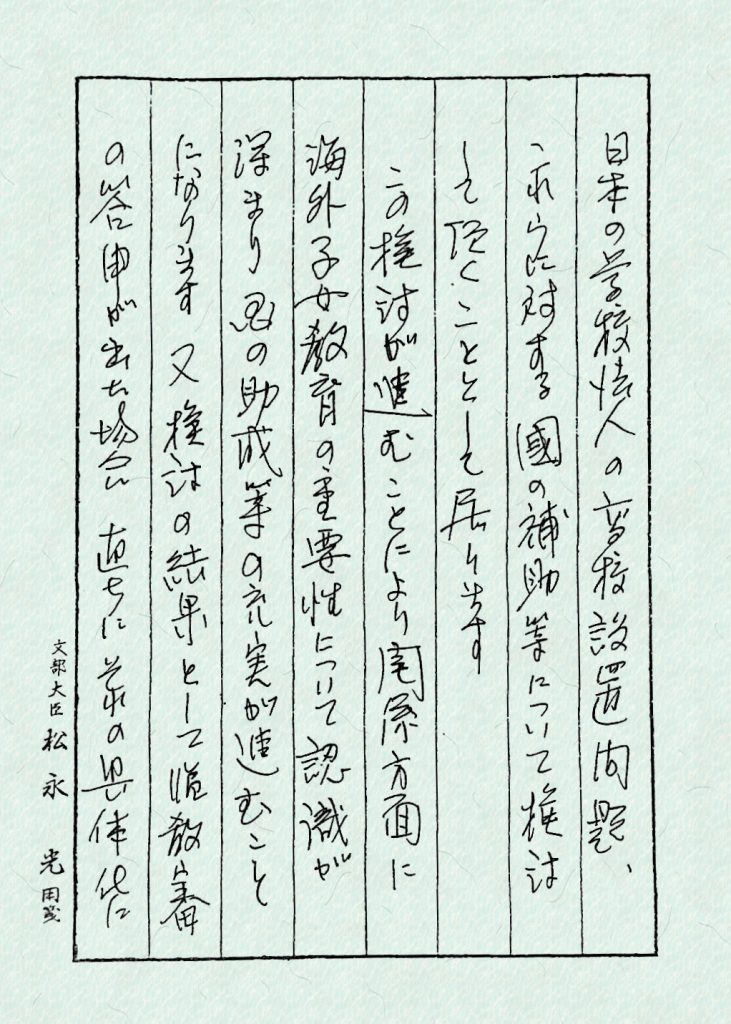 日本の学校法人の高校設置問題、
これらに対する國の補助等について検討
して頂くこととして居ります
この検討が進むことにより関係方面に
海外子女教育の重要性について認識が
深まり 国の助成等の充実が進むこと
になります 又検討の結果として臨教審
の答申が出た場合 直ちに其の具体化に
文部大臣 松永 光用箋